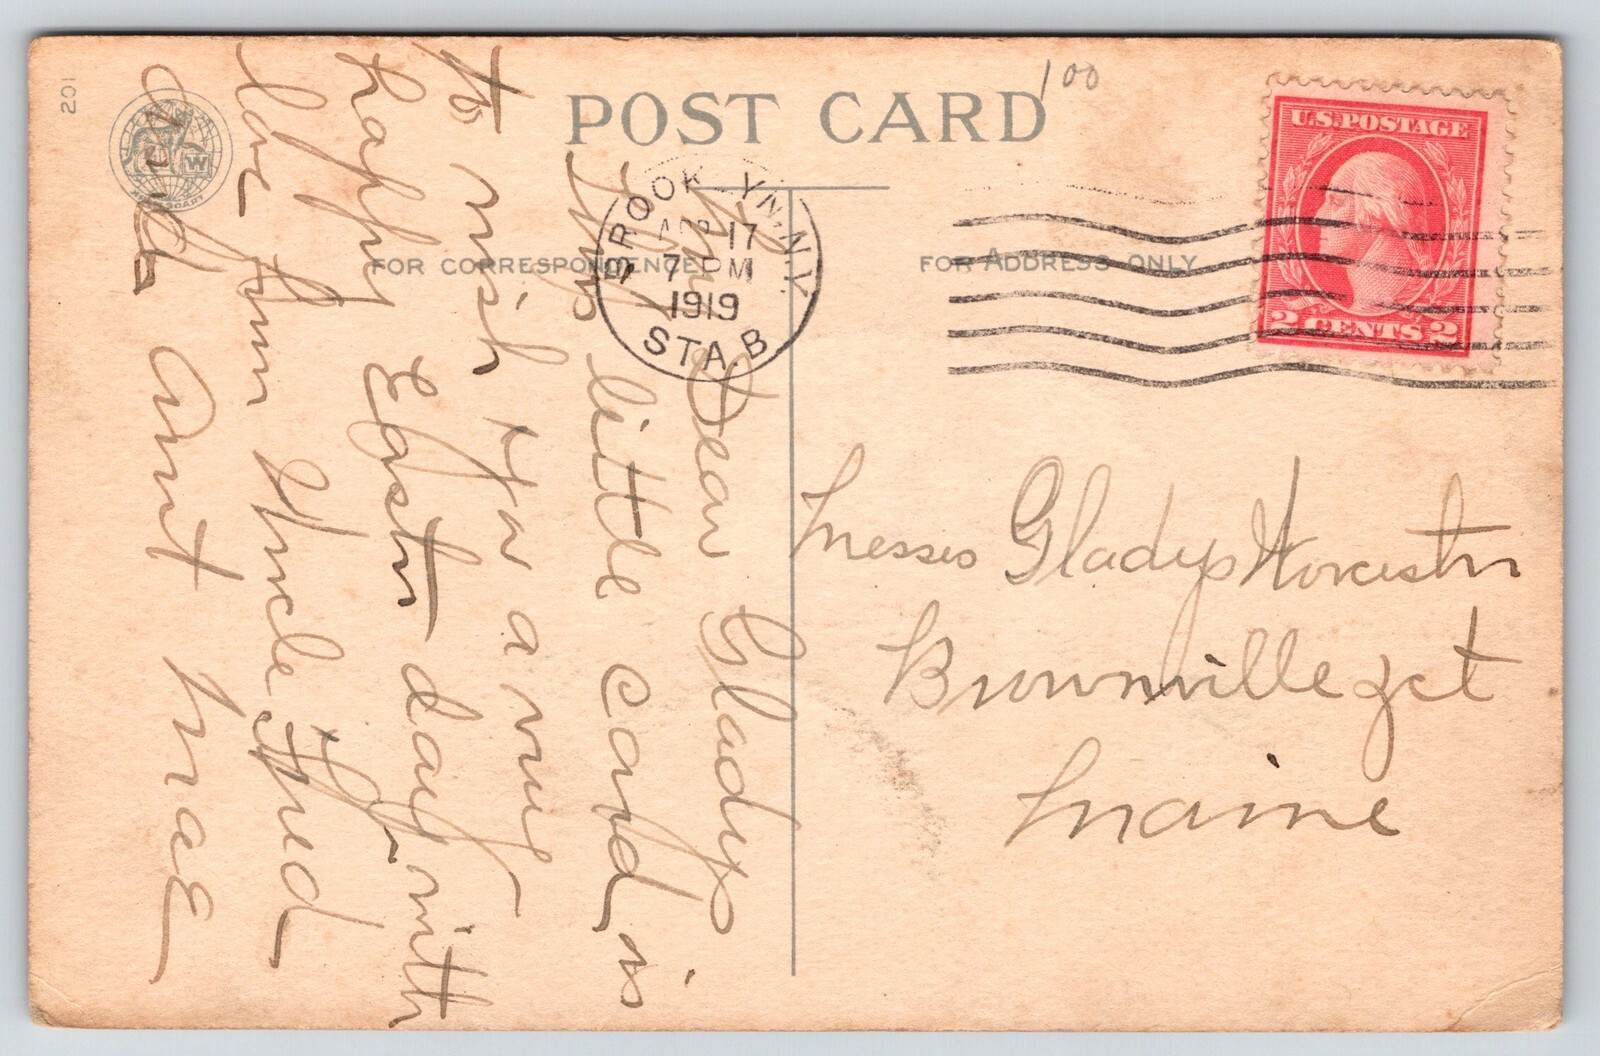 201
POST CARD
100
U.S. POSTAGE
2 CENTS 2
BROOKLYN, N.Y.
APR 17
7 PM
1919
STA. B
FOR CORRESPONDENCE
FOR ADDRESS ONLY
W
My Dear Gladys
This little card is
to wish you a very
happy Easter day with
love from Uncle Fred
and Aunt Mae
Messes Gladys Worcester
Brownville Jct
Maine